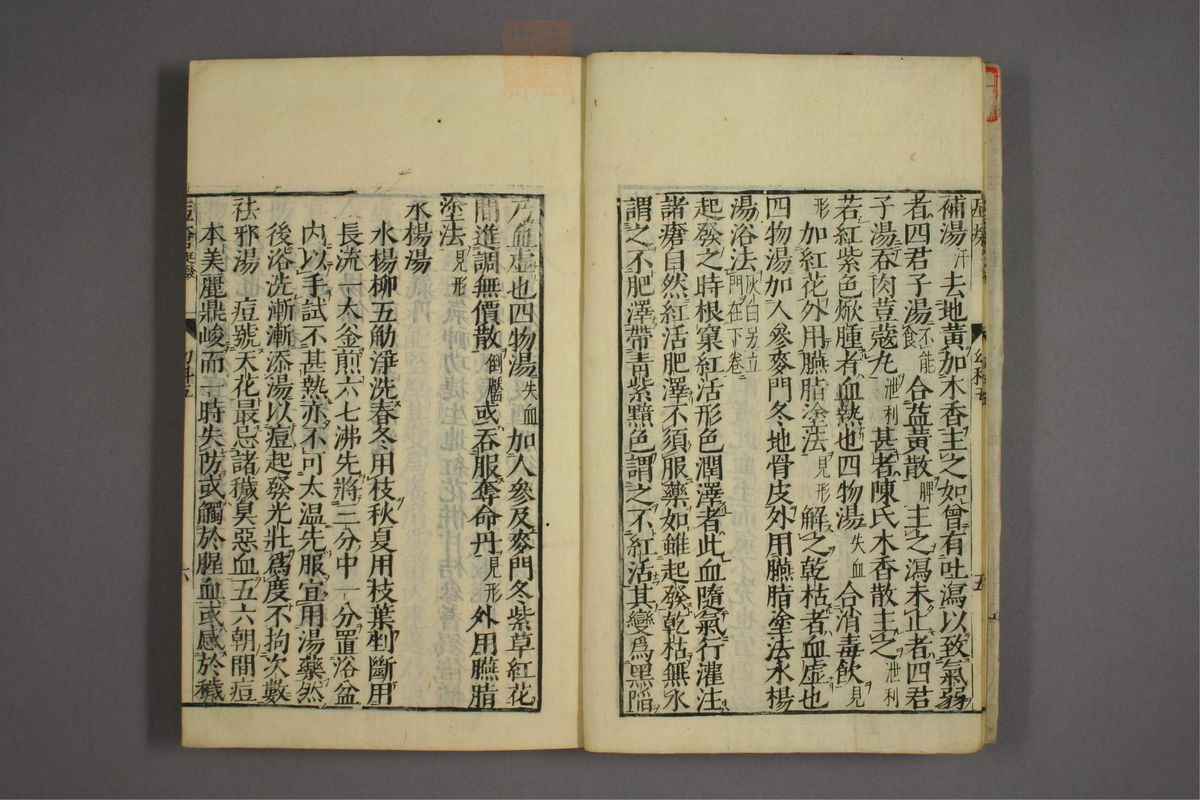 補湯汗去地黃加木香主之如曾有吐瀉以致氣弱
者四君子湯不能食合益黃散脾主之瀉未止者四君
子湯吞肉荳蔻丸泄利甚者陳氏木香散主之泄利
若紅紫色焮腫者血熱也四物湯失血合消毒飲見
形加紅花外用臙脂塗法見形解之乾枯者血虛也
四物湯加人參麥門冬地骨皮外用臙脂塗法水楊
湯浴法灰白另立門在下卷
起發之時根窠紅活形色潤澤者此血隨氣行灌注
諸瘡自然紅活肥澤不須服藥如雖起發乾枯無水
謂之不肥澤帶青紫黯色謂之不紅活其變爲黑陷
五
乃血虛也四物湯失血加人參及麥門冬紫草紅花
間進調無價散倒靨或吞服奪命丹見形外用臙脂
塗法見形
水楊湯
水楊柳五觔淨洗春冬用枝秋夏用枝葉剉斷用
長流一大釜煎六七沸先將三分中一分置浴盆
內以手試不甚熱亦不可太溫先服宜用湯藥然
後浴洗漸漸添湯以痘起發光壯爲度不拘次數
祛邪湯 痘號天花最忌諸穢臭惡血五六朝間痘
本美麗鼎峻而一時失防或觸於腥血或感於穢
幼科五
六